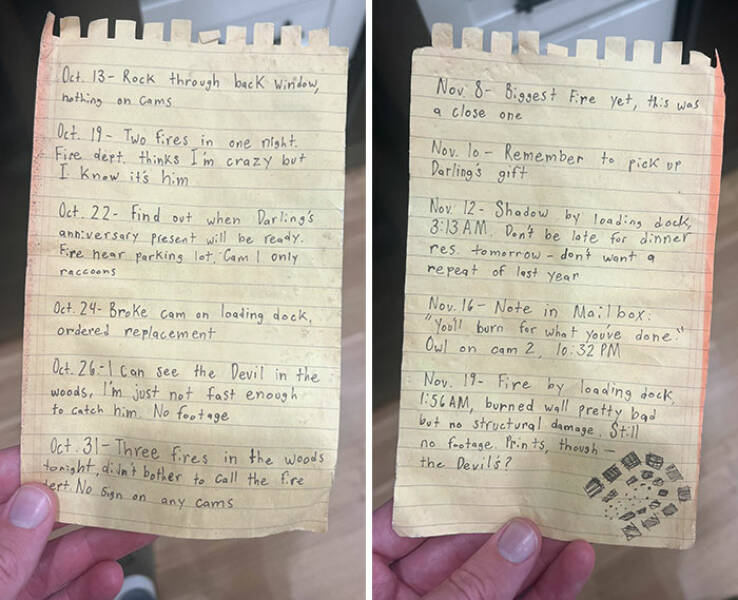 Oct. 13- Rock through back window,
nothing on cams
Oct. 19- Two fires in one night.
Fire dept. thinks I'm crazy but
I know it's him
Oct. 22- Find out when Darling's
anniversary present will be ready.
Fire near parking lot, Cam 1 only
raccoons
Oct. 24- Broke cam on loading dock,
ordered replacement
Oct. 26- I Can see the Devil in the
woods, I'm just not fast enough
to catch him. No footage
Oct. 31- Three fires in the woods
tonight, didn't bother to call the fire
dept. No sign on any cams
Nov. 8- Biggest Fire yet, this was
a close one
Nov. 10- Remember to pick up
Darling's gift
Nov. 12- Shadow by loading dock,
3:13 AM. Don't be late for dinner
res. tomorrow - don't want a
repeat of last year
Nov. 16- Note in Mailbox:
"You'll burn for what you've done."
Owl on cam 2, 10:32 PM
Nov. 19- Fire by loading dock,
1:56 AM, burned wall pretty bad
but no structural damage. Still
no footage. Prints, though -
the Devil's?